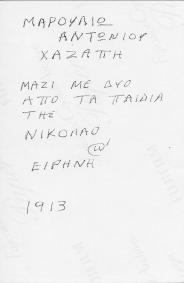 ΜΑΡΟΥΛΙΩ
ΑΝΤΩΝΙΟΥ
ΧΑΖΑΠΗ
ΜΑΖΙ ΜΕ ΔΥΟ
ΑΠΟ ΤΑ ΠΑΙΔΙΑ
ΤΗΣ
ΝΙΚΟΛΑΟ
@
ΕΙΡΗΝΗ
1913